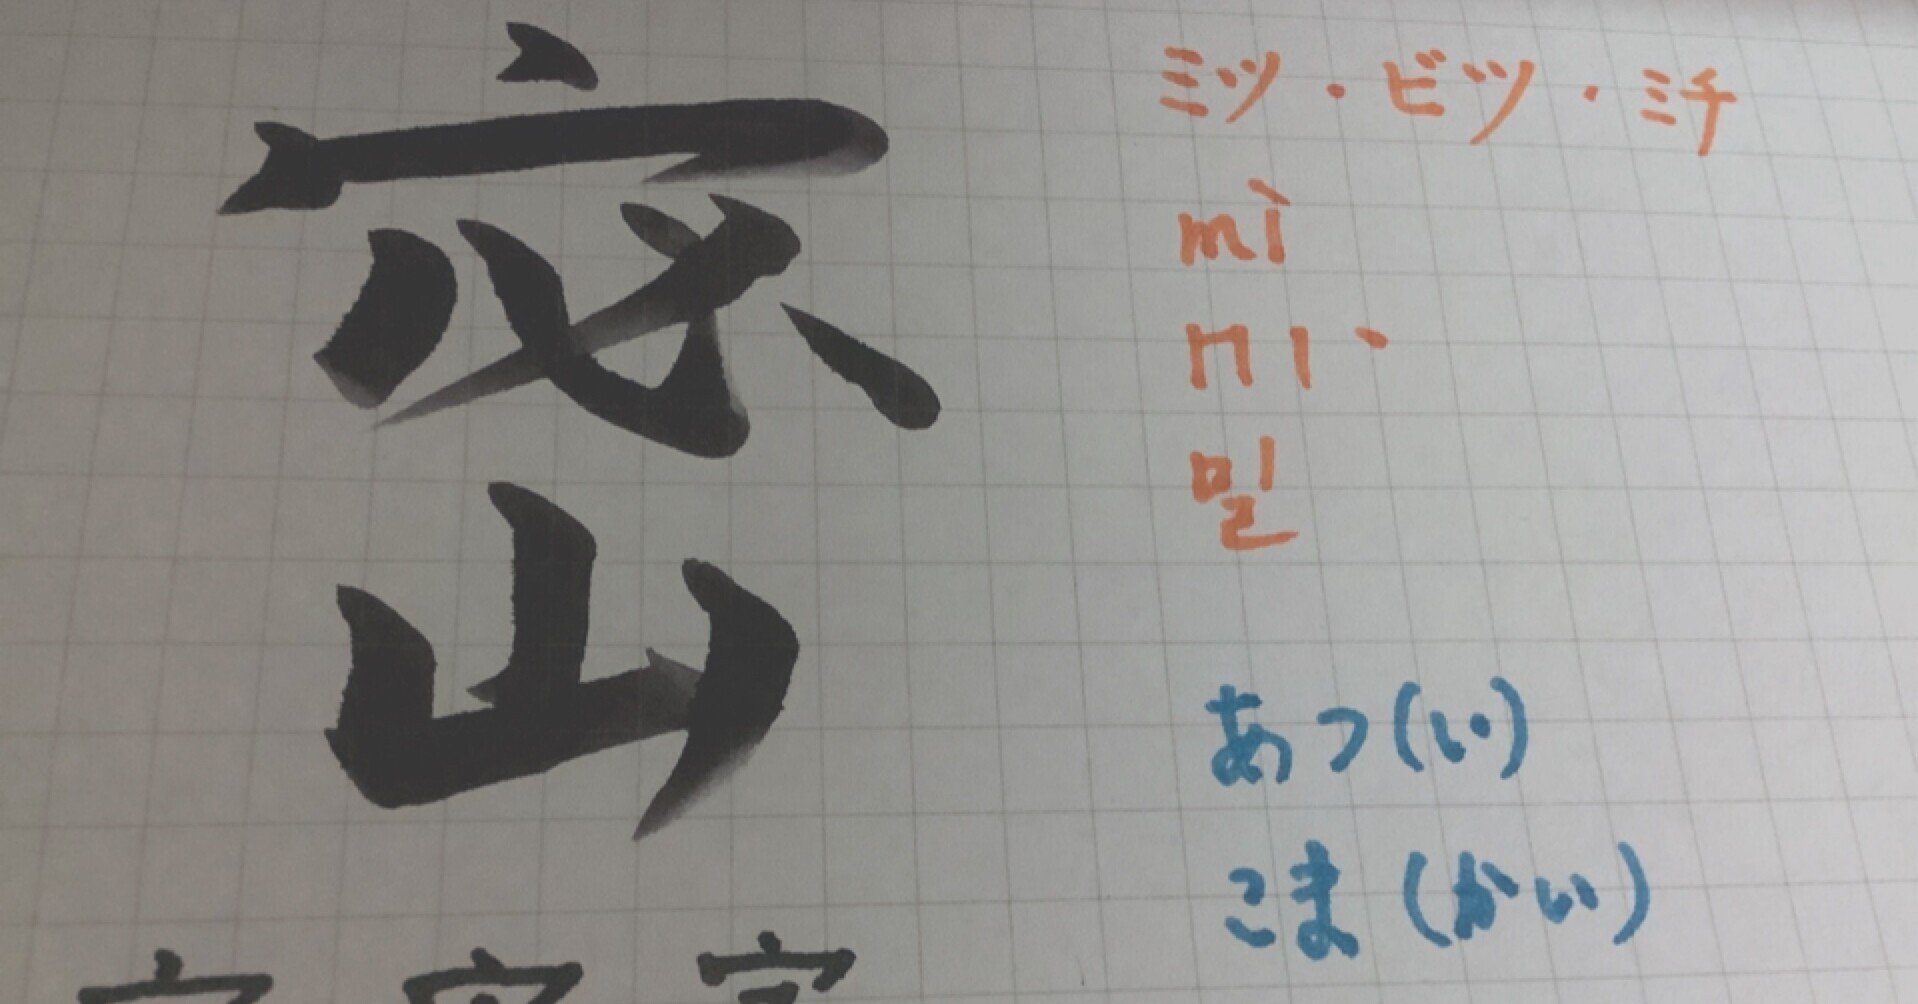 密
ミツ・ビツ・ミチ
mì
ㄇㄧˋ
밀
あつ(い)
こま(かい)